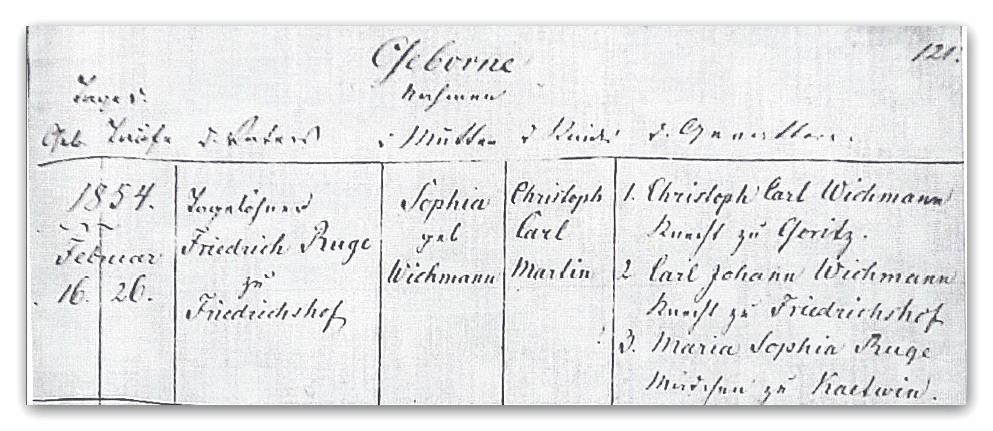 Geborne
121.
Tages
Nahmen
Geb. Taufe d. Vaters d. Mutter d. Kindes d. Gevattern.
1854.
Februar
16. 26.
Tagelöhner
Friedrich Ruge
zu
Friedrichshof
Sophia
geb
Wichmann
Christoph
Carl
Martin
1. Christoph Carl Wichmann
Knecht zu Goritz.
2 Carl Johann Wichmann
Knecht zu Friedrichshof
3. Maria Sophia Ruge
Mädchen zu Kaetwin.